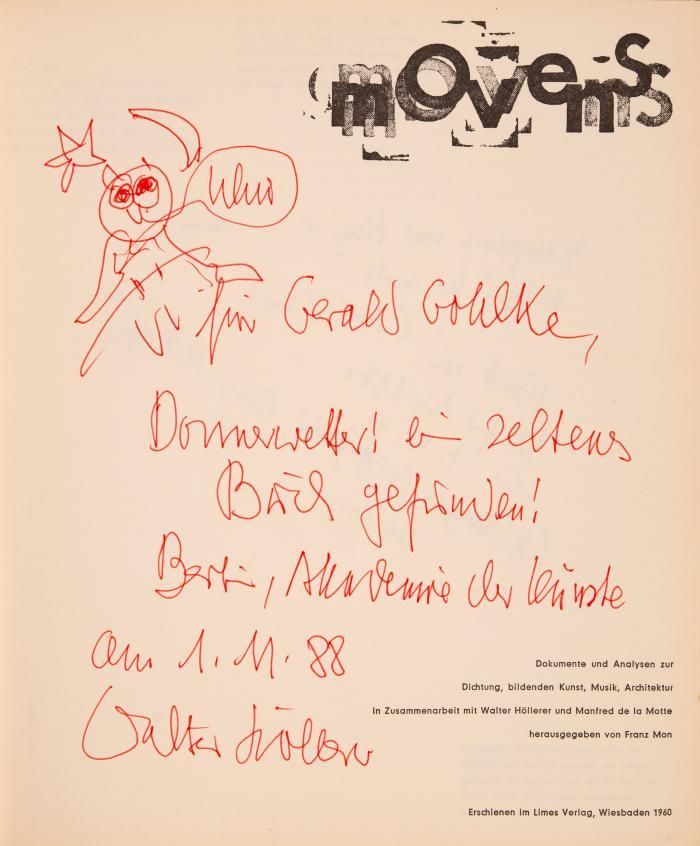 movens
Uhu
für Gerald Gohlke,
Donnerwetter! ein seltenes
Buch gefunden!
Berlin, Akademie der Künste
am 1. 11. 88
Walter Höllerer
Dokumente und Analysen zur
Dichtung, bildenden Kunst, Musik, Architektur
In Zusammenarbeit mit Walter Höllerer und Manfred de la Motte
herausgegeben von Franz Mon
Erschienen im Limes Verlag, Wiesbaden 1960